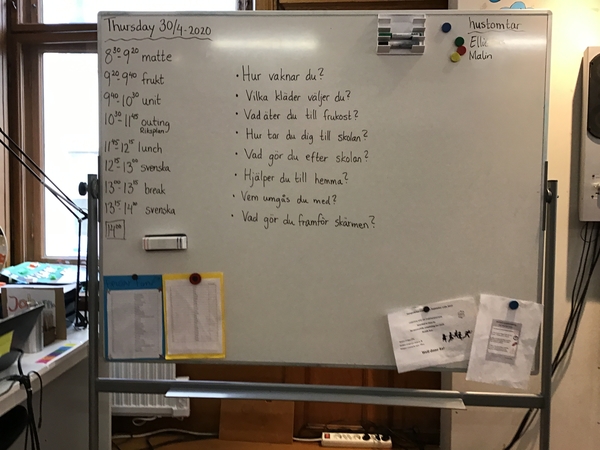 Thursday 30/4-2020
8³⁰-9²⁰ matte
9²⁰-9⁴⁰ frukt
9⁴⁰-10³⁰ unit
10³⁰-11⁴⁵ outing
Ritsplan
11⁴⁵-12¹⁵ lunch
12¹⁵-13⁰⁰ svenska
13⁰⁰-13¹⁵ break
13¹⁵-14⁰⁰ svenska
• Hur vaknar du?
• Vilka kläder väljer du?
• Vad äter du till frukost?
• Hur tar du dig till skolan?
• Vad gör du efter skolan?
• Hjälper du till hemma?
• Vem umgås du med?
• Vad gör du framför skärmen?
hustomtar
Ellie
Malin